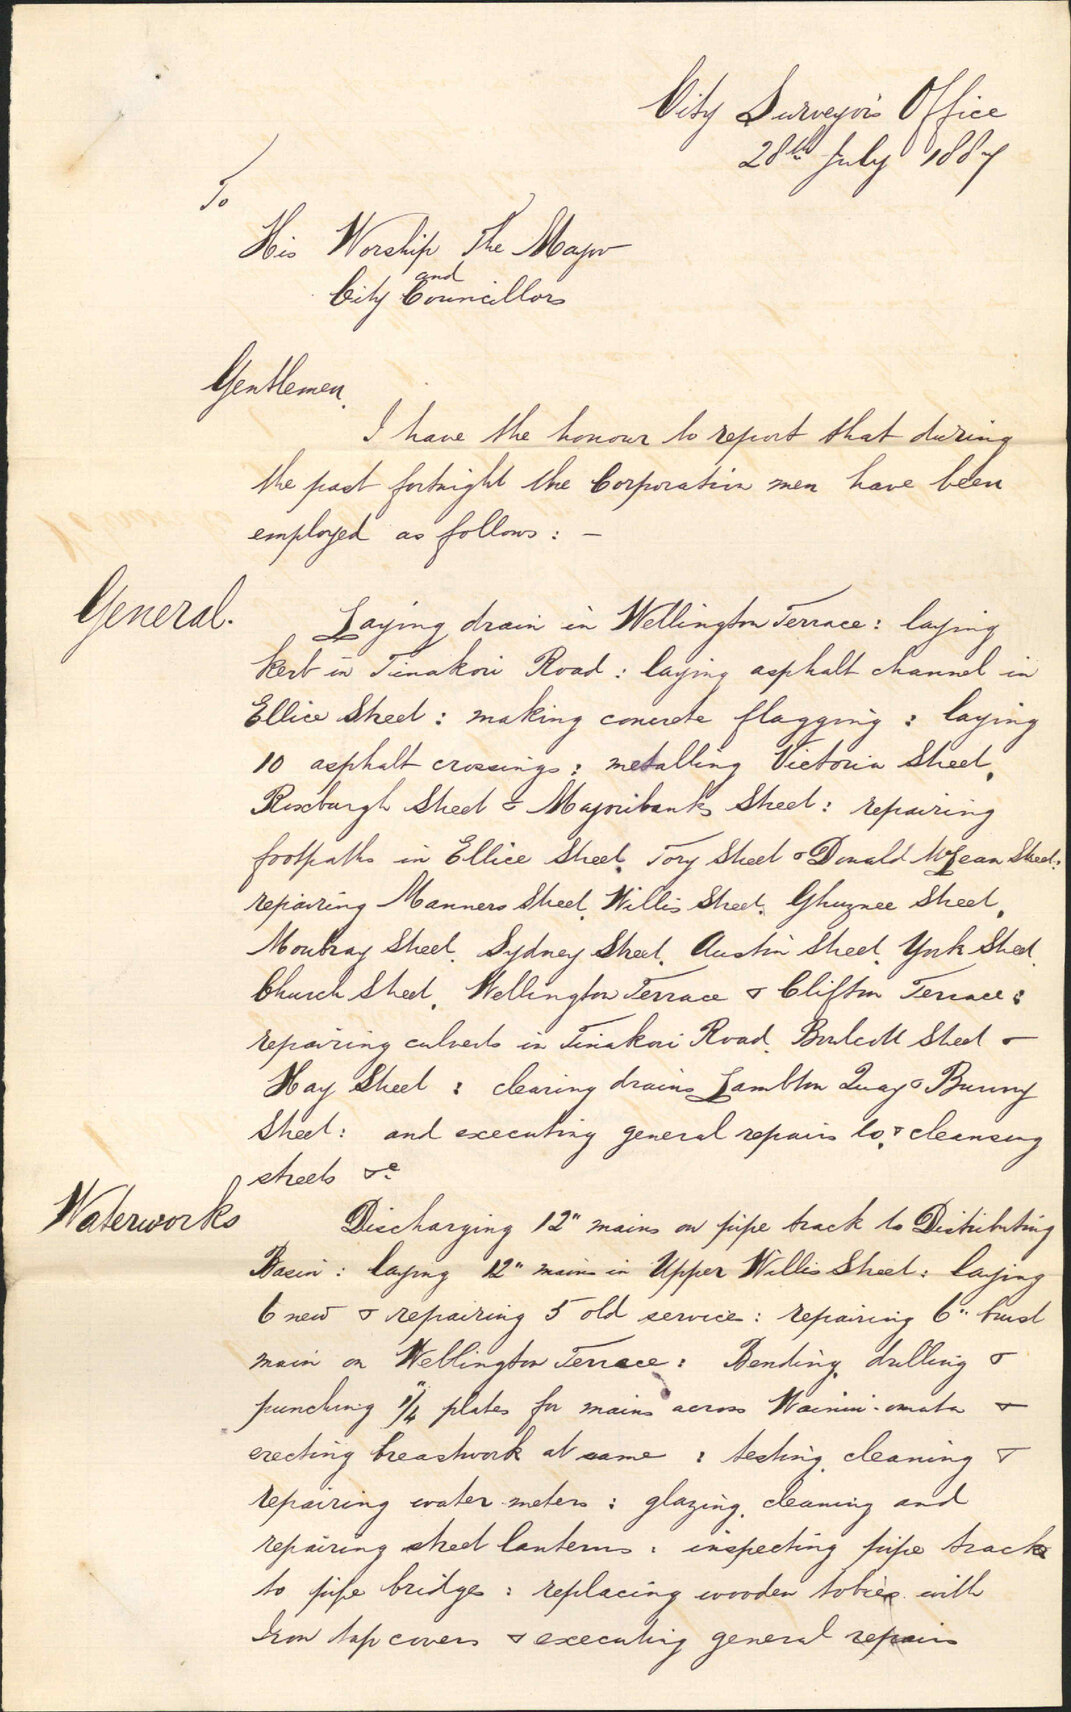 City Surveyor's Office
28th July 1887
To
His Worship The Mayor
and
City Councillors
Gentlemen.
I have the honour to report that during
the past fortnight the Corporation men have been
employed as follows : -
General.
Laying drain in Wellington Terrace : laying
kerb in Tinakori Road : laying asphalt channel in
Ellice Street : making concrete flagging : laying
10 asphalt crossings : metalling Victoria Street,
Roxburgh Street & Majoribanks Street : repairing
footpaths in Ellice Street, Tory Street & Donald McLean Street :
repairing Manners Street, Willis Street, Ghuznee Street,
Moubray Street, Sydney Street, Austin Street, York Street,
Church Street, Wellington Terrace & Clifton Terrace :
repairing culverts in Tinakori Road, Boulcott Street &
Hay Street : clearing drains Lambton Quay & Bunny
Street : and executing general repairs to, & cleansing
streets &c
Waterworks
Discharging 12" mains on pipe track to Distributing
Basin : laying 12" main in Upper Willis Street : laying
6 new & repairing 5 old service : repairing 6" burst
main on Wellington Terrace : Bending, drilling &
punching 1/4" plates for mains across Wainui-omata &
erecting breastwork at same : testing, cleaning &
repairing water meters : glazing, cleaning and
repairing street lanterns : inspecting pipe track
to pipe bridge : replacing wooden tobies with
Iron tap covers & executing general repairs